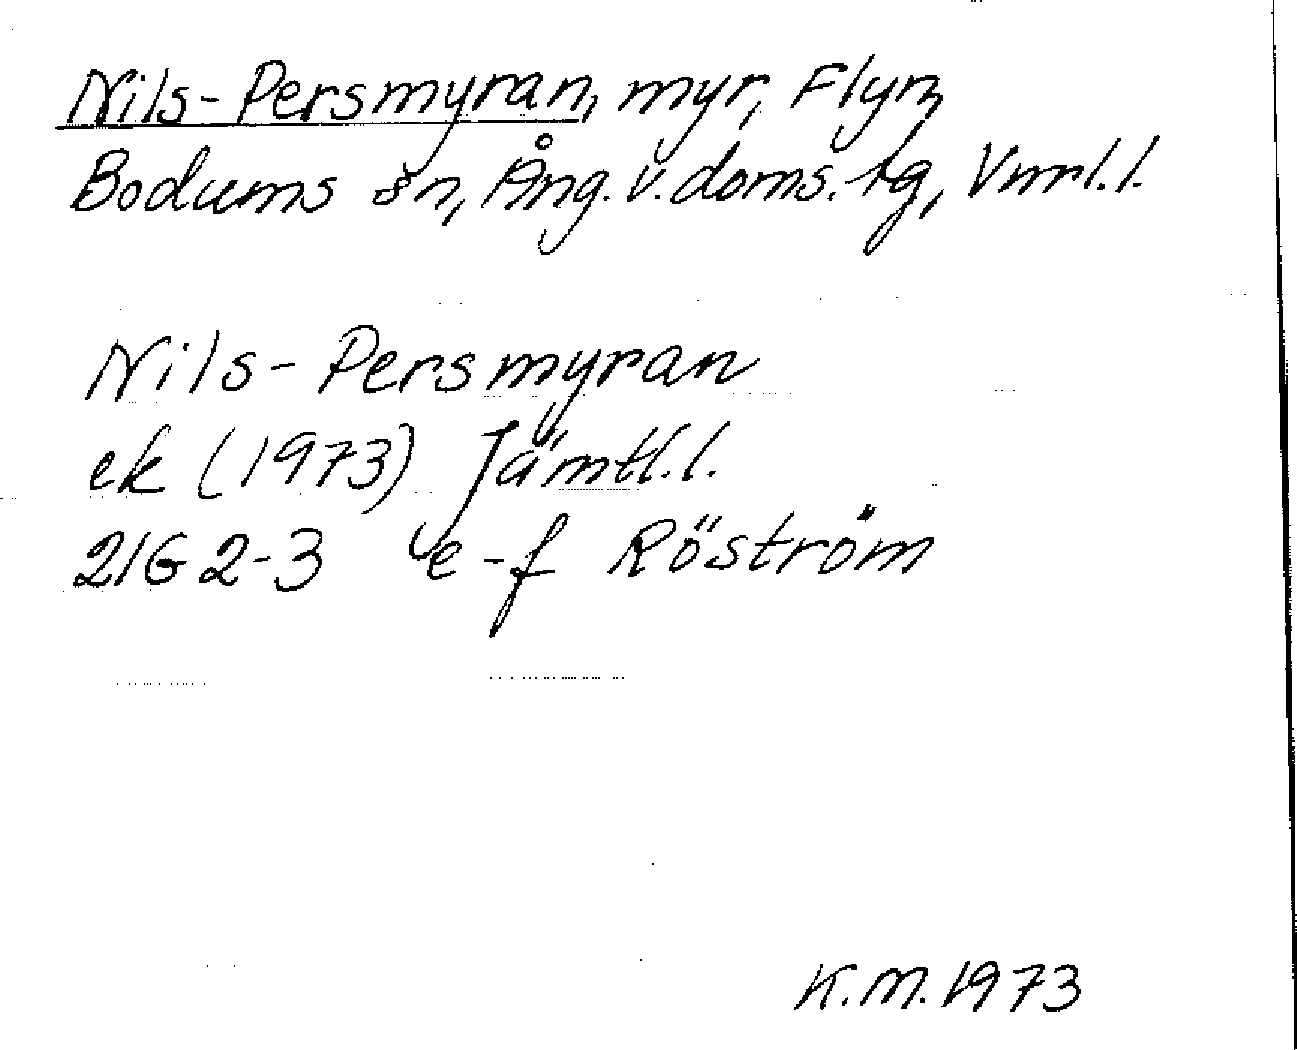 Nils-Persmyran, myr, Flyn,
Bodums sn, Ång. v. doms. tg, Vnrl. l.
Nils-Persmyran
ek (1973) Jämtl. l.
21G 2-3 e-f Röström
K.M. 1973